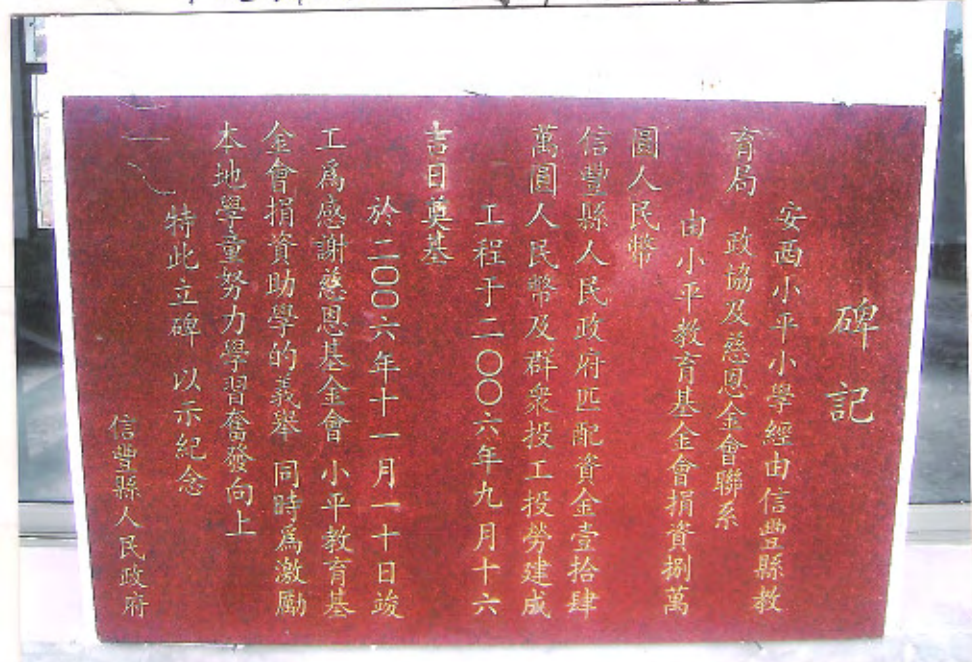 碑記
安西小平小學經由信豐縣教
育局 政協及慈恩金會聯系
由小平教育基金會捐資捌萬
圓人民幣
信豐縣人民政府匹配資金壹拾肆
萬圓人民幣及群衆投工投勞建成
工程于二〇〇六年九月十六
吉日奠基
於二〇〇六年十一月一十日竣
工爲感謝慈恩基金會 小平教育基
金會捐資助學的義舉 同時爲激勵
本地學童努力學習奮發向上
特此立碑 以示紀念
信豐縣人民政府